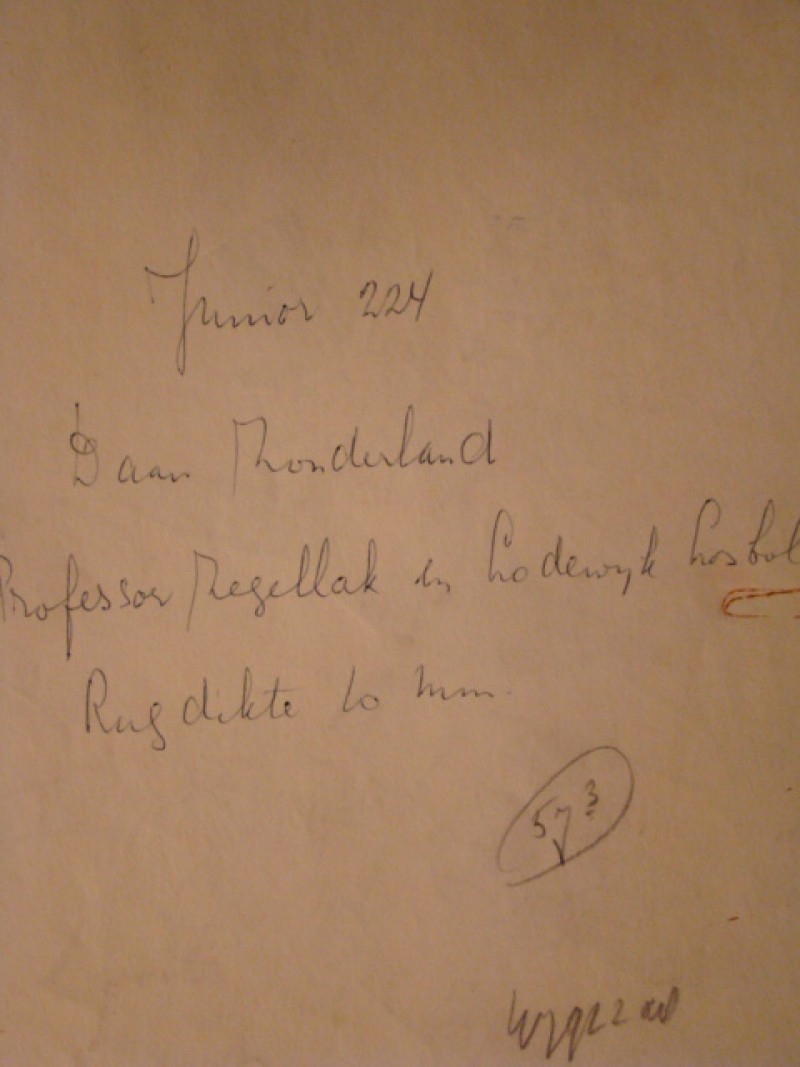 Junior 224
Daan Zonderland
Professor Zegellak en Lodewyk Losbol
Rugdikte 10 mm.
57 3